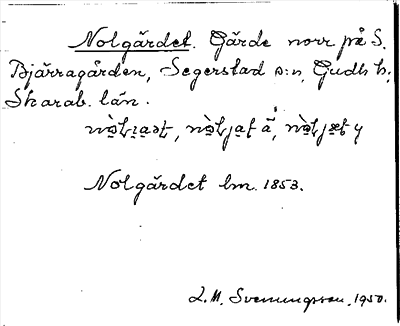 Nolgärdet. Gärde norr på S.
Bjärragården, Segerstad s:n, Gudh. h.,
Skarab. län.
Nolgärdet lm. 1853.
L. M. Svenungsson, 1950.